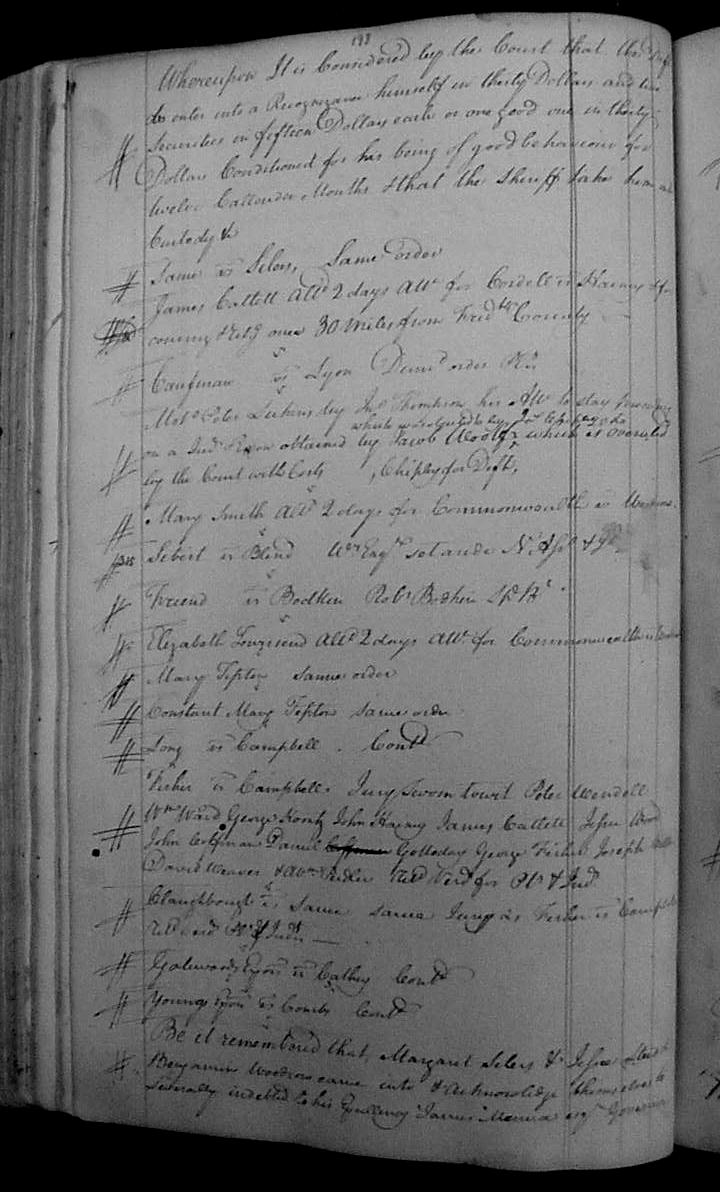 198
Whereupon It is Considered by the Court that the Deft
do enter into a Recognizance himself in thirty Dollars and two
Securities in fifteen Dollars each or one good one in thirty
Dollars Conditioned for his being of good behaviour for
twelve Callender Months & that the Sheriff take him in
Custody &c
Same vs Selers, Same order
James Catlett alld 2 days attr for Cordell vs Harvey & for
coming & retg once 30 miles from Fredk County
Caufman vs Lyon Demd order
Peter by Jno Thompson his Atto to stay
which was objected to by
on a Judt obtained by Jacob Woolf which is overruled
by the Court with Costs Chipley for Deft.
Mary Smith alld 2 days for Commonwealth vs
Sebert vs Blind Wr Enqy set aside N. Ass &
Friend vs Bodkin Robt Bodkin Sp. B.
Elizabeth Townsend alld 2 days attr for Commonwealth vs
Mary Tipton same order
Constant Mary Tipton same order
Long vs Campbell. Contd
Fisher vs Campbell. Jury Sworn towit Peter Wendell
Wm Ward George Kontz John Harvey James Catlett Jesse Wood
John Coffman Daniel Golloday George Fisher Joseph
David Weaver & Abm retd Verd for Plt & Judt
Claughbough vs Same same Jury as Fisher vs Campbell
retd verd Plt & Judt
vs Cathey Contd
Youngs vs Combs Contd
Be it remembered that, Margaret Selers & Jesse
Benjamin Woodrow came into & acknowledge themselves
Severally indebted to his Excellency James Monroe esqr Governor